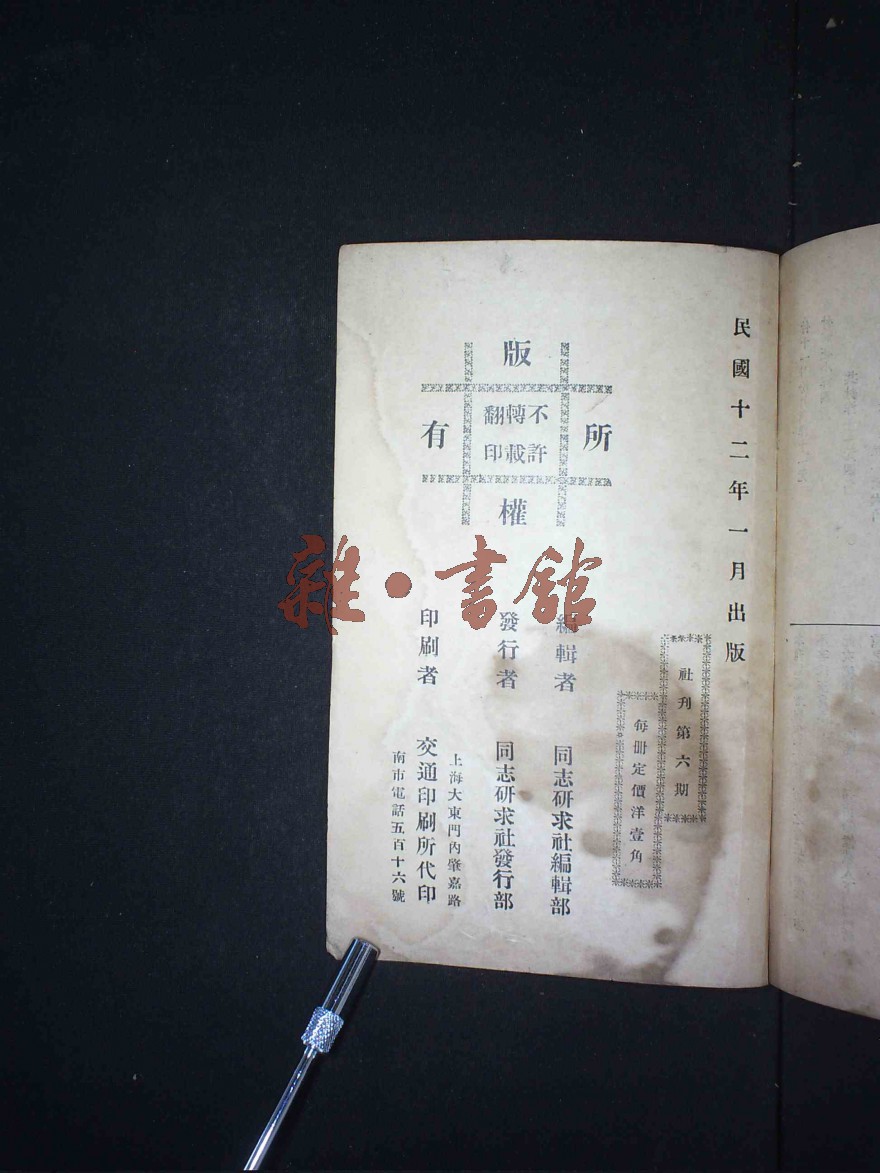 民國十二年一月出版
社刊第六期
每冊定價洋壹角
版權所有
不許
轉載
翻印
編輯者 同志研求社編輯部
發行者 同志研求社發行部
上海大東門內肇嘉路
印刷者 交通印刷所代印
南市電話五百十六號
雜·書館